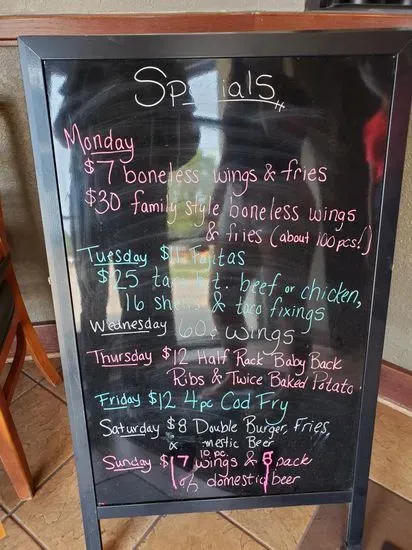 Specials
Monday
$7 boneless wings & fries
$30 family style boneless wings
& fries (about 100 pcs!)
Tuesday $11 Fajitas
$25 taco kit. beef or chicken,
16 shells & taco fixings
Wednesday 60¢ wings
Thursday $12 Half Rack Baby Back
Ribs & Twice Baked Potato
Friday $12 4pc Cod Fry
Saturday $8 Double Burger, Fries,
& Domestic Beer
10 pc.
Sunday $17 wings & pack
of domestic beer